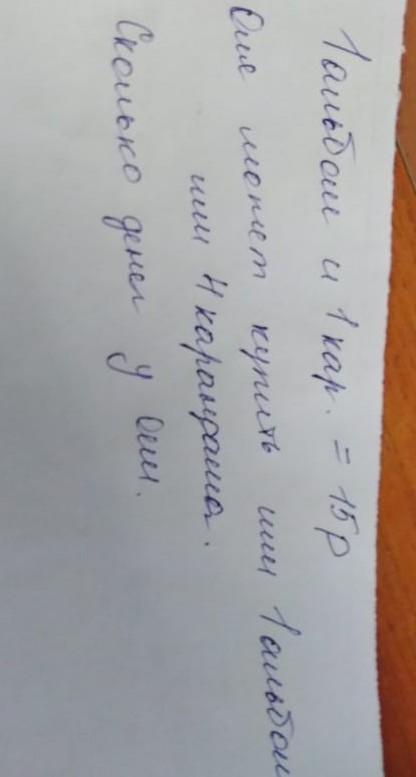 1 альбом и 1 кар. = 15р
Оля может купить или 1 альбом
или 4 карандаша.
Сколько денег у Оли.